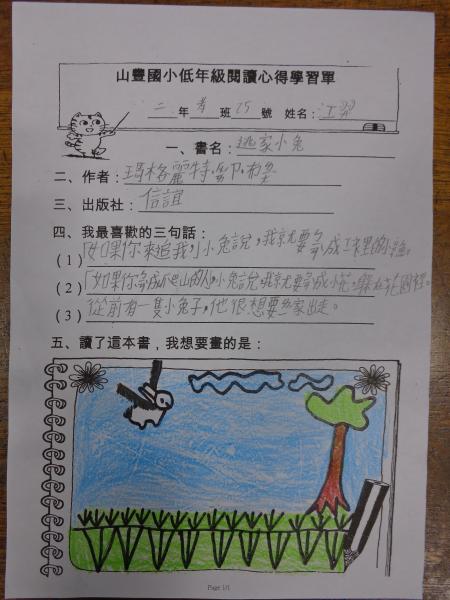 山豐國小低年級閱讀心得學習單
二年孝班25號 姓名:江
一、書名:逃家小兔
二、作者:瑪格麗特
三、出版社:信誼
四、我最喜歡的三句話:
(1)「如果你來追我,」小兔說,我就要變成
(2)「如果你變成爬山的人,」小兔說,我就要變成小花,躲在花園裡。
(3)從前有一隻小兔子,他很想要離家出走。
五、讀了這本書,我想要畫的是:
Page 1/1